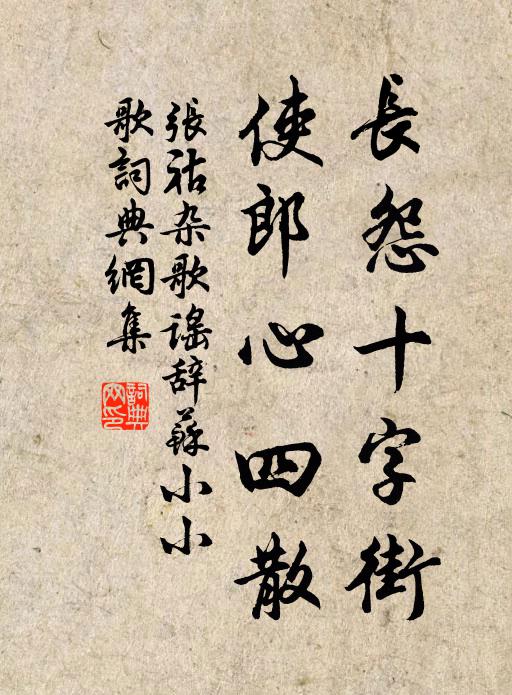 長怨十字街
使郎心四散
張祜杂歌谣辞蘇小小
歌詞典網集
詞典
网印